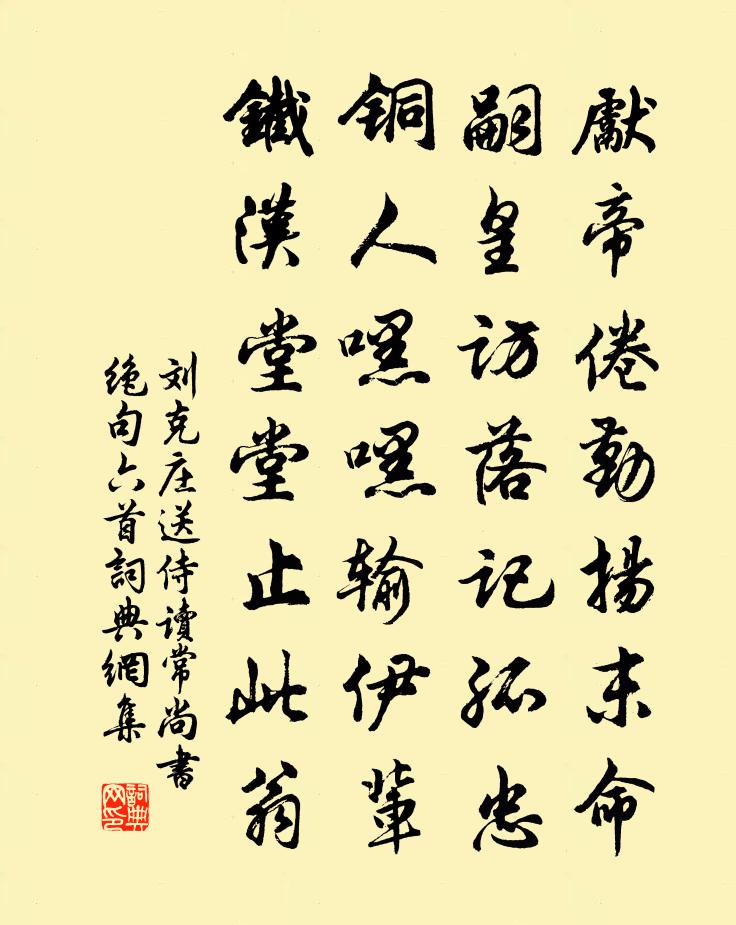 獻帝倦勤揚末命
嗣皇訪落記孤忠
铜人嘿嘿输伊輩
鐵漢堂堂止此翁
刘克庄送侍讀常尚書
绝句六首詞典網集
詞典网印